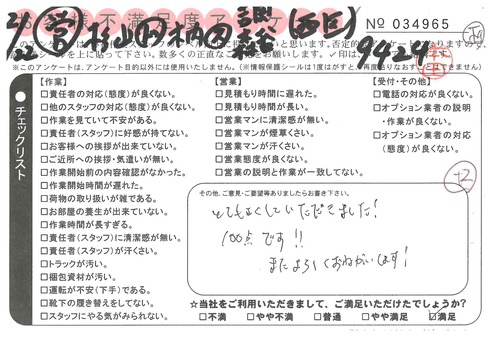 お客様不満足度アンケート
No 034965
※このアンケートは、アンケート目的以外には使用いたしません。
チェックリスト
【作業】
□責任者の対応(態度)が良くない。
□他のスタッフの対応(態度)が良くない。
□作業を見ていて不安がある。
□責任者(スタッフ)に好感が持てない。
□お客様への挨拶が出来ていない。
□ご近所への挨拶・気遣いが無い。
□作業開始前の内容確認がなかった。
□作業開始時間が遅れた。
□荷物の取り扱いが雑である。
□お部屋の養生が出来ていない。
□作業時間が長すぎる。
□責任者(スタッフ)に清潔感が無い。
□責任者(スタッフ)が汗くさい。
□トラックが汚い。
□梱包資材が汚い。
□運転が不安(下手)である。
□靴下の履き替えをしてない。
□スタッフにやる気がみられない。
【営業】
□見積もり時間に遅れた。
□見積もり時間が長い。
□営業マンに清潔感が無い。
□営業マンが煙草くさい。
□営業マンが汗くさい。
□営業態度が良くない。
□営業の説明と作業が一致してない。
【受付・その他】
□電話の対応が良くない。
□オプション業者の説明
・作業が良くない。
□オプション業者の対応
(態度)が良くない。
+2
その他、ご意見・ご要望等ありましたらお書き下さい。
とてもよくしていただきました!
100点です!!
またよろしくおねがいします!
☆当社をご利用いただきまして、ご満足いただけたでしょうか?
□不満 □やや不満 □普通 □やや満足 ☑満足